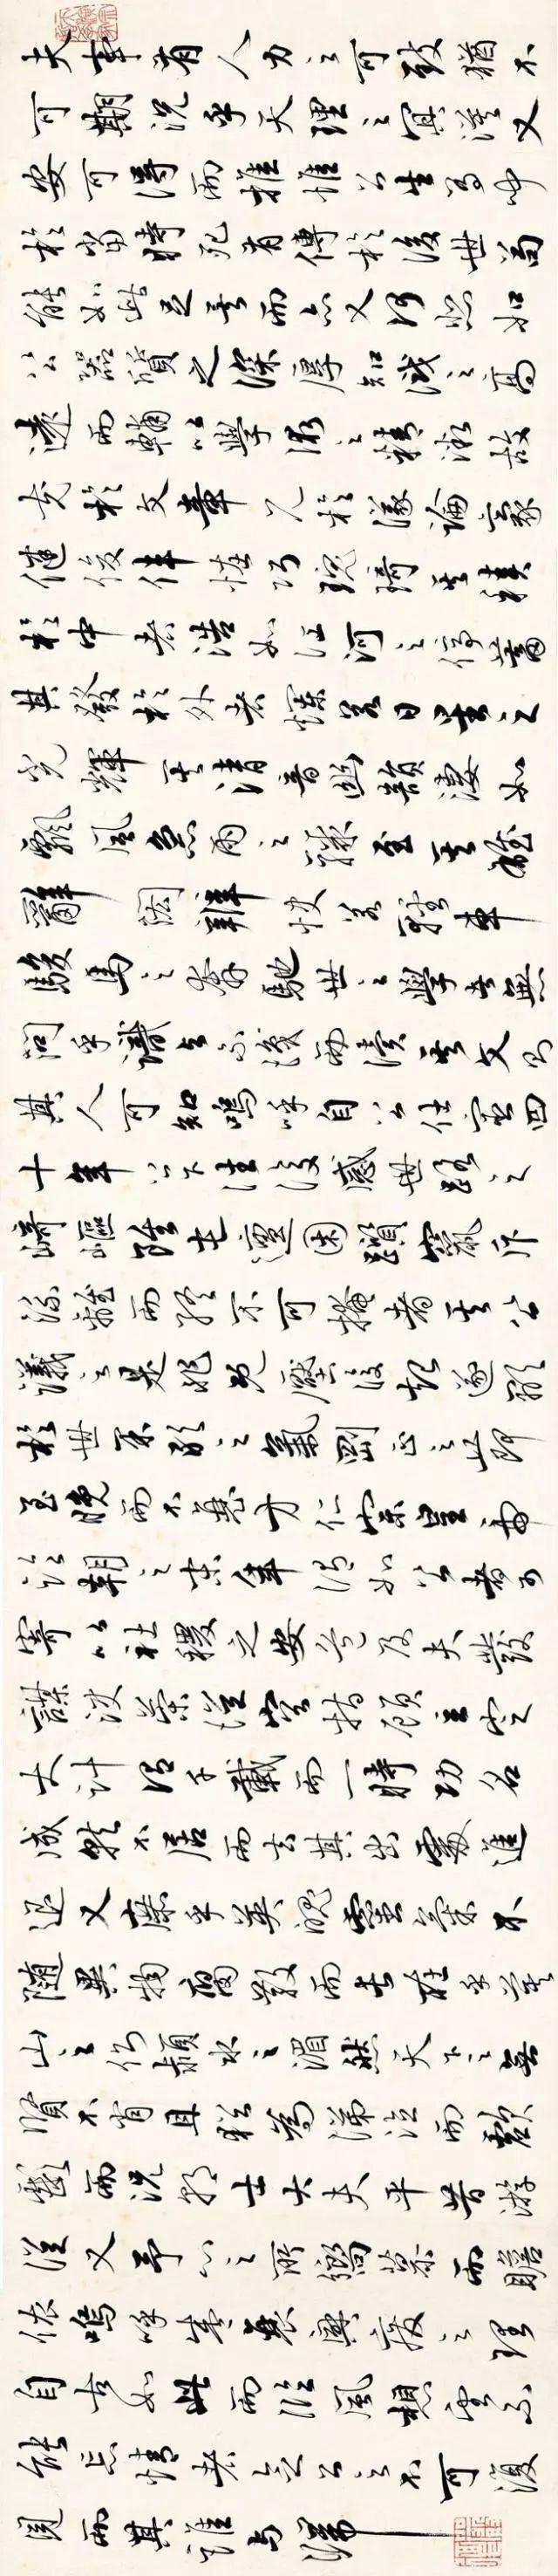 夫事有人力之可致猶不
可期況乎天理之冥漠又
安可得而推惟公生有聞
於當時死有傳於後世苟
能如此足矣而亦又何悲如
公器質之深厚知識之高
遠而輔以學術之精微故
充於文章見於議論豪
健俊偉怪巧瑰琦其積
於中者浩如江河之停蓄
其發於外者爛若日星之
光輝其清音幽韻淒如
飄風急雨之驟至其雄
辭閎辯快若輕車
駿馬之奔馳世之學者無
問乎識與不識而讀其文則
其人可知嗚呼自公仕宦四
十年上下往復感世路之
崎嶇雖屯邅困躓竄斥
流離而終不可掩者其公
議之是非既壓復起遂顯
於世果敢之氣剛正之節
至晚而不衰方仁宗皇帝
臨朝之末年謂如公者可
寄以社稷之安危及夫發
謀決策從容指顧立定
大計謂千載而一時功名
成就不居而去其出處進
退又庶乎英魄靈氣不
隨異物腐散而長在乎箕
山之側潁水之湄然天下之無
賢不肖且猶為涕泣而歔
欷而況朝士大夫平昔游
從又予心之所嚮慕而瞻
依嗚呼盛衰興廢之理
自古如此而臨風想望不
能忘情者念公之不可復
見而其誰與歸